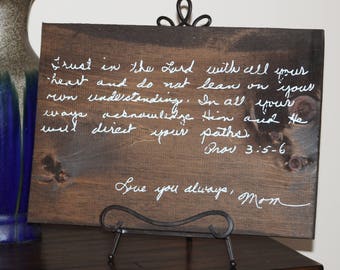 Trust in the Lord with all your
heart and do not lean on your
own understanding. In all your
ways acknowledge Him and He
will direct your paths.
Prov 3:5-6
Love you always, Mom